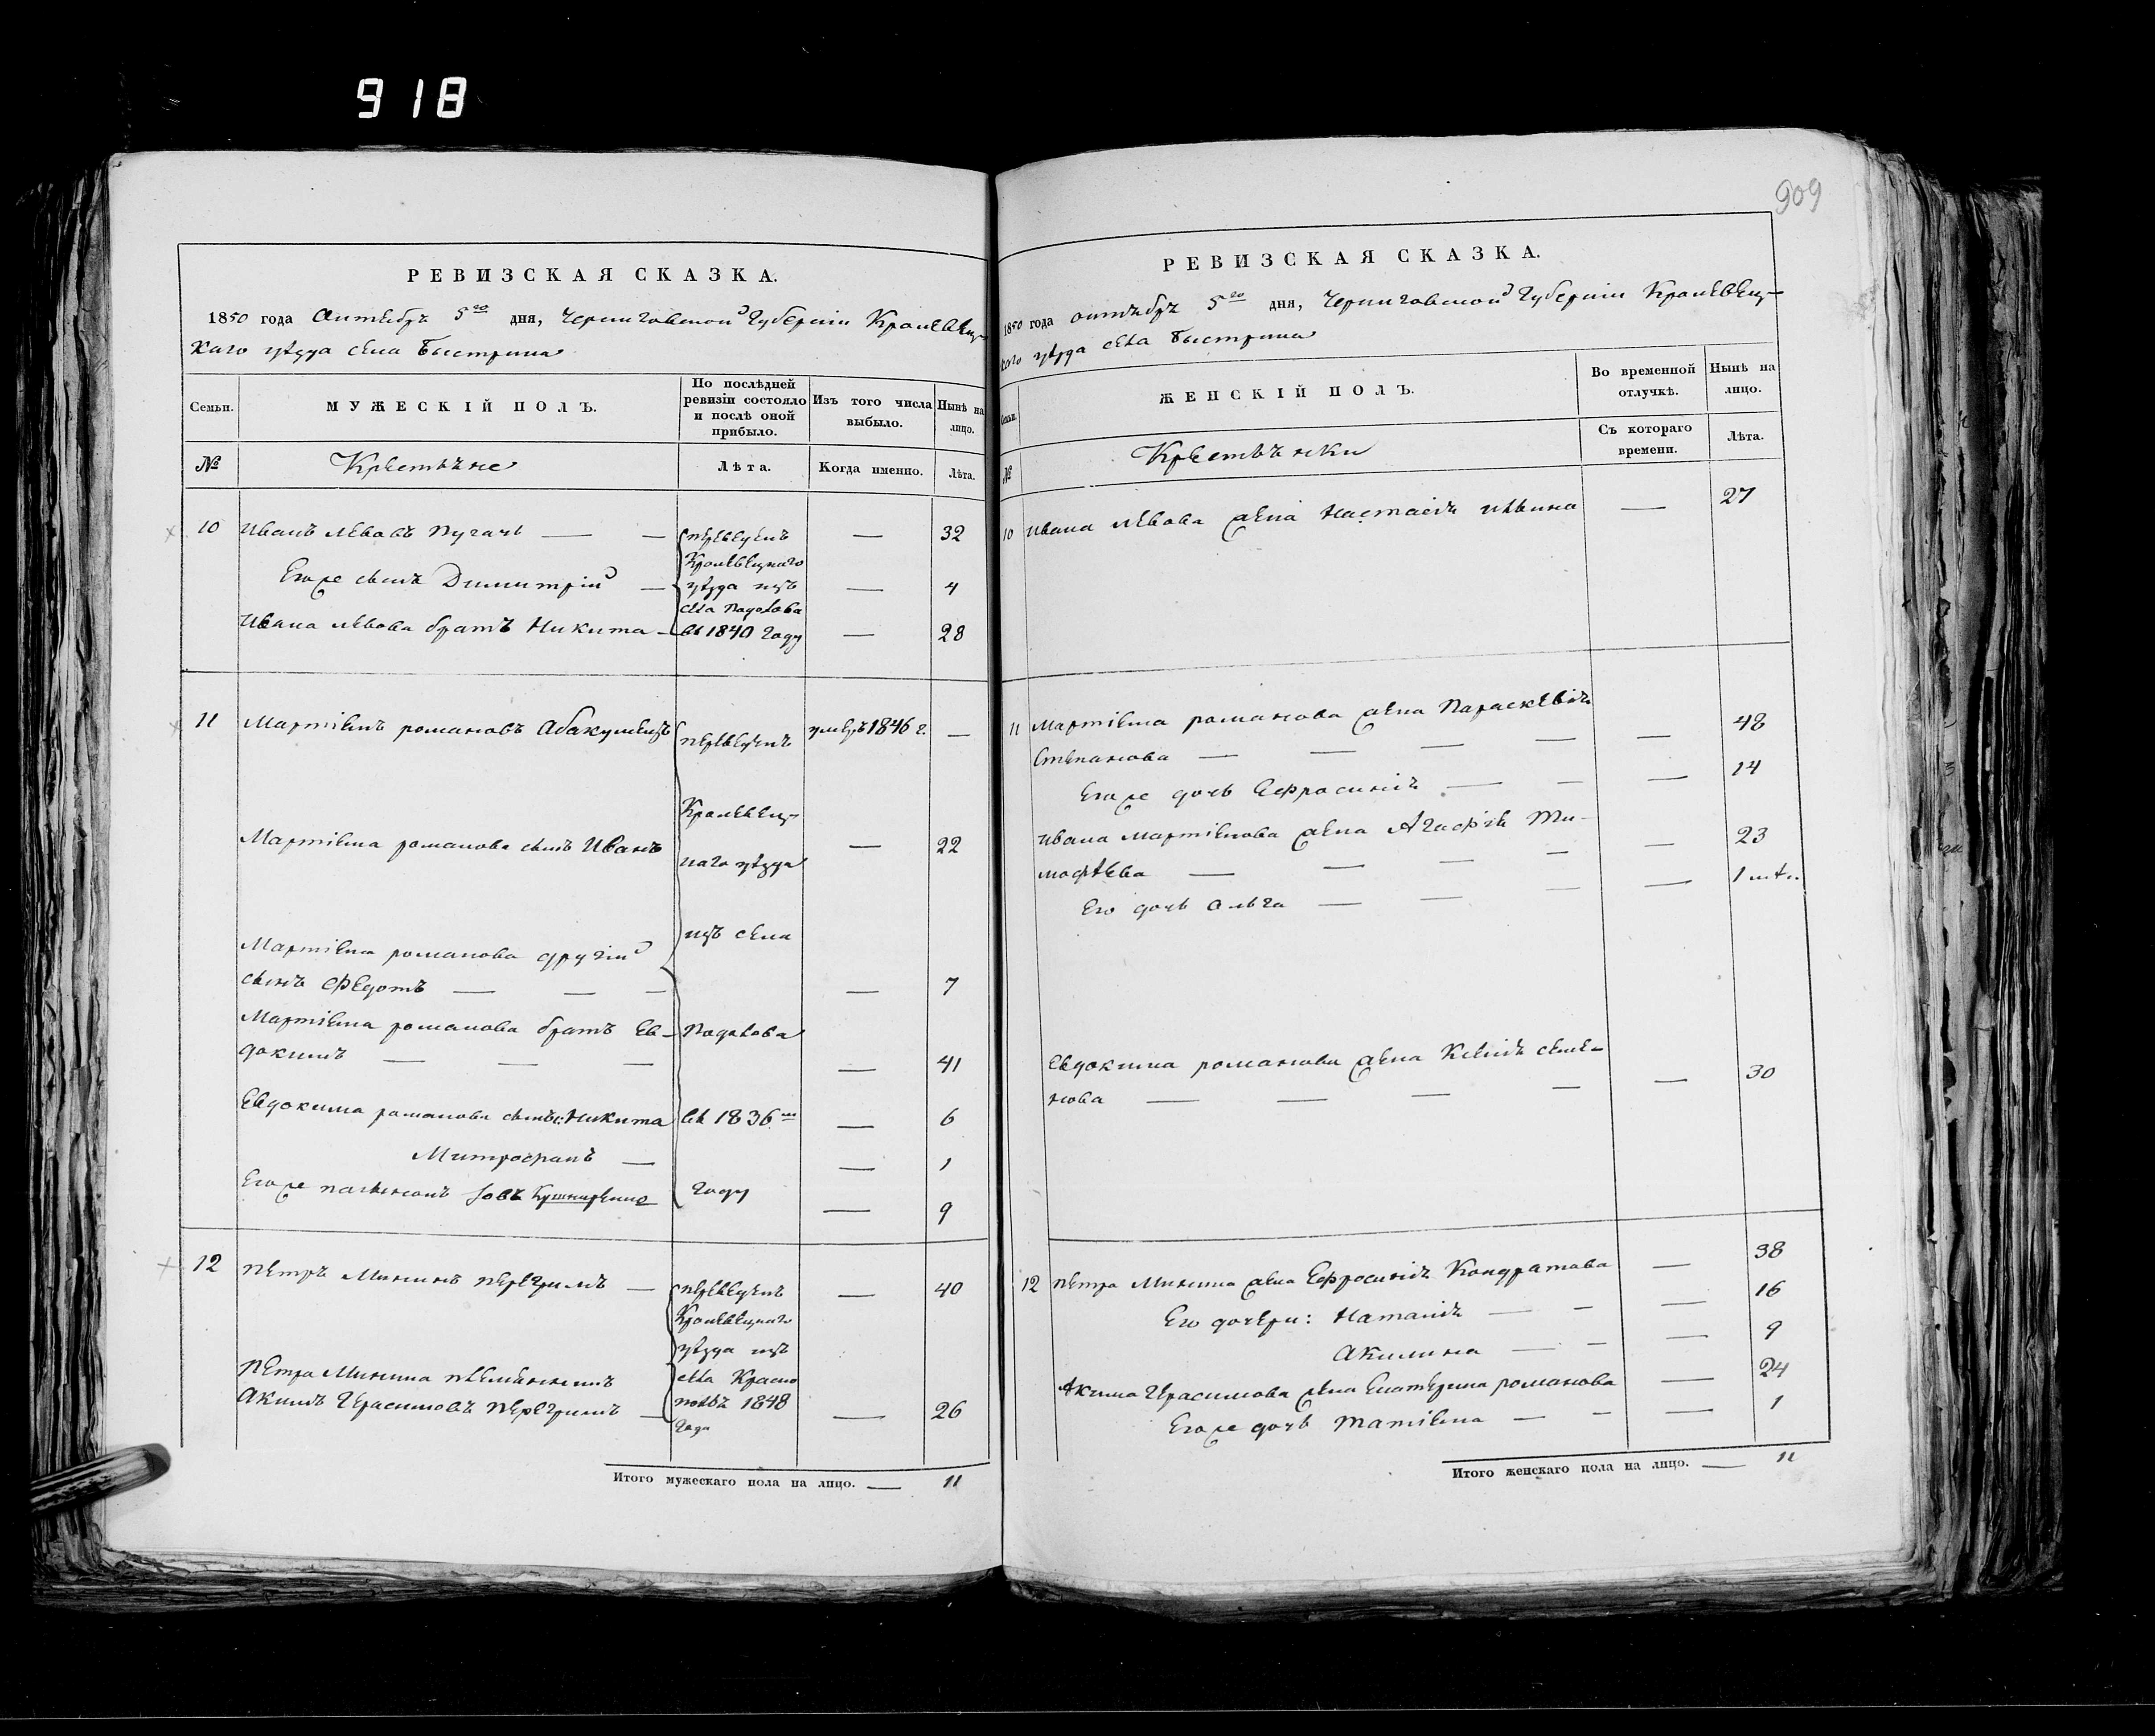 918
909
РЕВИЗСКАЯ СКАЗКА.
1850 года Октября 5го дня, Черниговской Губернии Кролевец-
каго уѣзда села Быстрика
Семьи.
МУЖЕСКІЙ ПОЛЪ.
По послѣдней ревизіи состояло и послѣ оной прибыло.
Изъ того числа выбыло.
Нынѣ на лицо.
№
Крестьяне
Лѣта.
Когда именно.
Лѣта.
10 Иванъ Левовъ Пугачъ — — переведенъ — 32
Кролевецкаго
Егоже сынъ Димитрій — уѣзда изъ — 4
села Подолова
Ивана Левова братъ Никита — въ 1840 году — 28
11 Мартинъ романовъ Абакумецъ переведенъ умеръ 1846 г. —
Кролевец-
Мартина романова сынъ Иванъ — 22
каго уѣзда
изъ села
Мартина романова другій
сынъ Федотъ — — — — 7
Мартина романова братъ Ев- Подолова
докимъ — — — — 41
Евдокима романова сыны: Никита въ 1836м — 6
Митрофанъ — — 1
Егоже пасынокъ Іовъ Кушниренко году — 9
12 Петръ Мининъ Перегримъ — переведенъ — 40
Кролевецкаго
уѣзда изъ
Петра Минина племянникъ села Красно
Акимъ Герасимовъ Перегримъ — 1848 — 26
года
Итого мужескаго пола на лицо. — 11
РЕВИЗСКАЯ СКАЗКА.
1850 года октября 5го дня, Черниговской Губерніи Кролевец-
каго уѣзда села Быстрика
Семьи.
ЖЕНСКІЙ ПОЛЪ.
Во временной отлучкѣ.
Нынѣ на лицо.
№
Крестьянки
Съ котораго времени.
Лѣта.
10 Ивана Левова жена Настасія — 27
11 Мартина романова жена Параскевія
Степанова — — — — — 48
Егоже дочь Ефросинія — — — 14
Ивана Мартинова жена Агафія Ти-
мофѣева — — — — — 23
Его дочь Ольга — — — — 1
Евдокима романова жена Ксенія семе-
нова — — — — — 30
12 Петра Минина жена Ефросинія Кондратова — 38
Его дочери: Наталія — — — 16
Акилина — — — 9
Акима Герасимова жена Екатерина романова — 24
Егоже дочь Татіана — — — 1
Итого женскаго пола на лицо. — 11